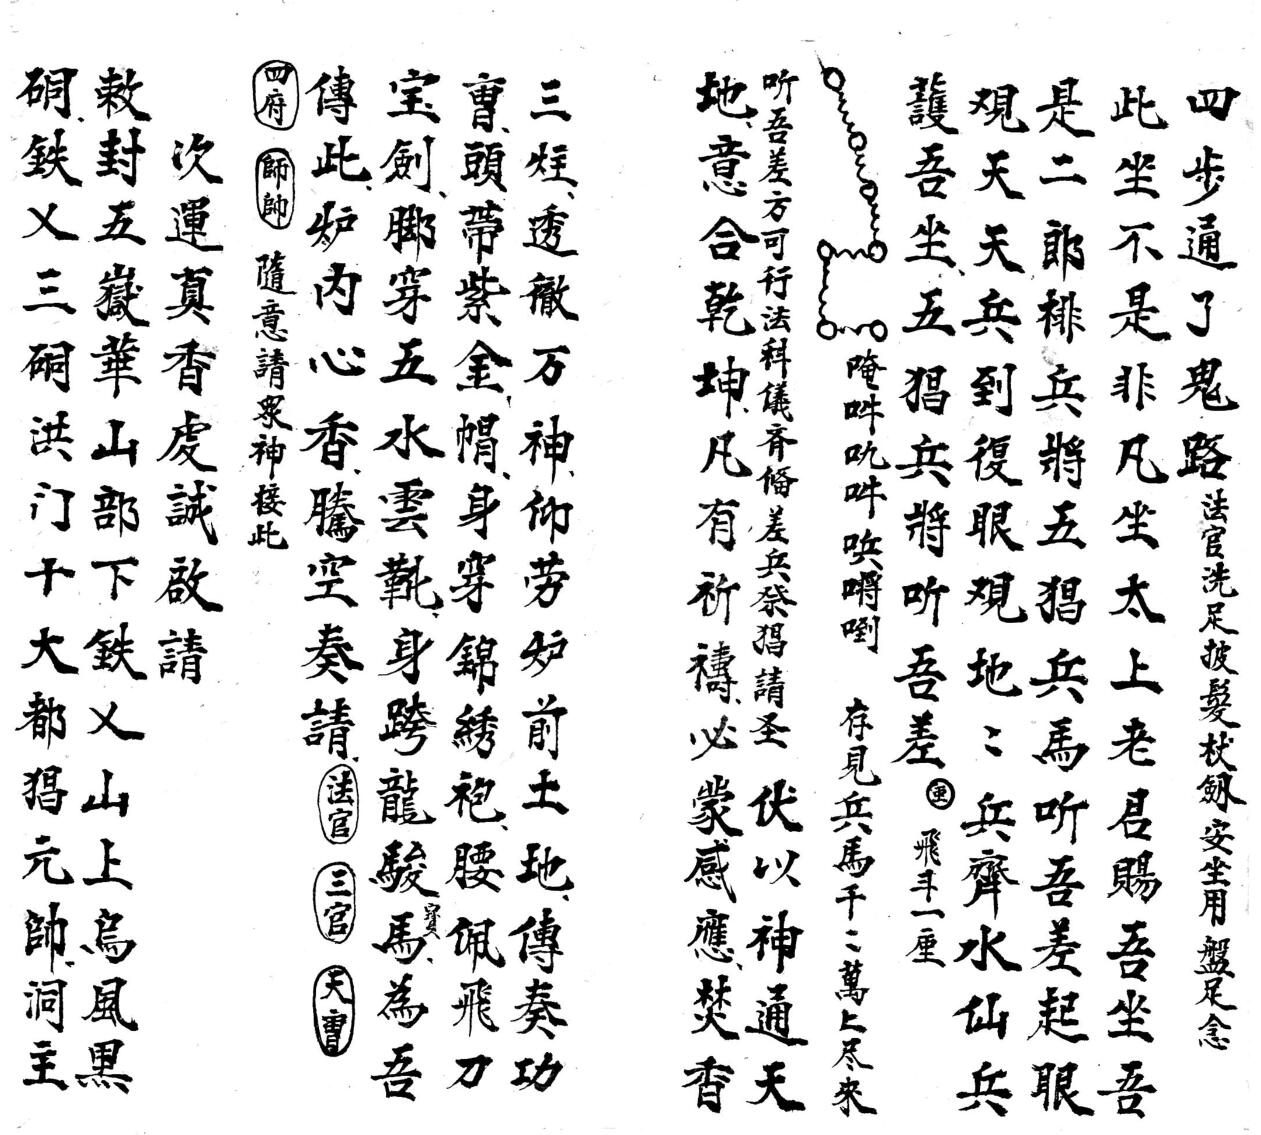 四步通了鬼路法官洗足披髮杖劔安坐用盤足念
此坐不是非凡坐太上老君賜吾坐吾
是二郎排兵將五猖兵馬听吾差起眼
观天天兵到復眼观地〻兵齊水仙兵
護吾坐五猖兵將听吾差 飛斗一座
唵吽吽嚼 存見兵馬千〻萬上尽來
听吾差方可行法科儀齊偹差兵祭猖請圣 伏以神通天
地意合乾坤凡有祈禱必蒙感應焚香
三炷透徹万神仰劳炉前土地傳奏功
曹頭帶紫金帽身穿錦綉袍腰佩飛刀
宝劍脚穿五水雲靴身跨龍駿馬為吾
寳
傳此炉内心香騰空奏請 法官 三官 天曹
四府 師帥 隨意請眾神接此
次運真香虔誠啟請
敕封五嶽華山部下鉄乂山上烏風黑
硐鉄乂三硐洪门十大都猖元帥洞主